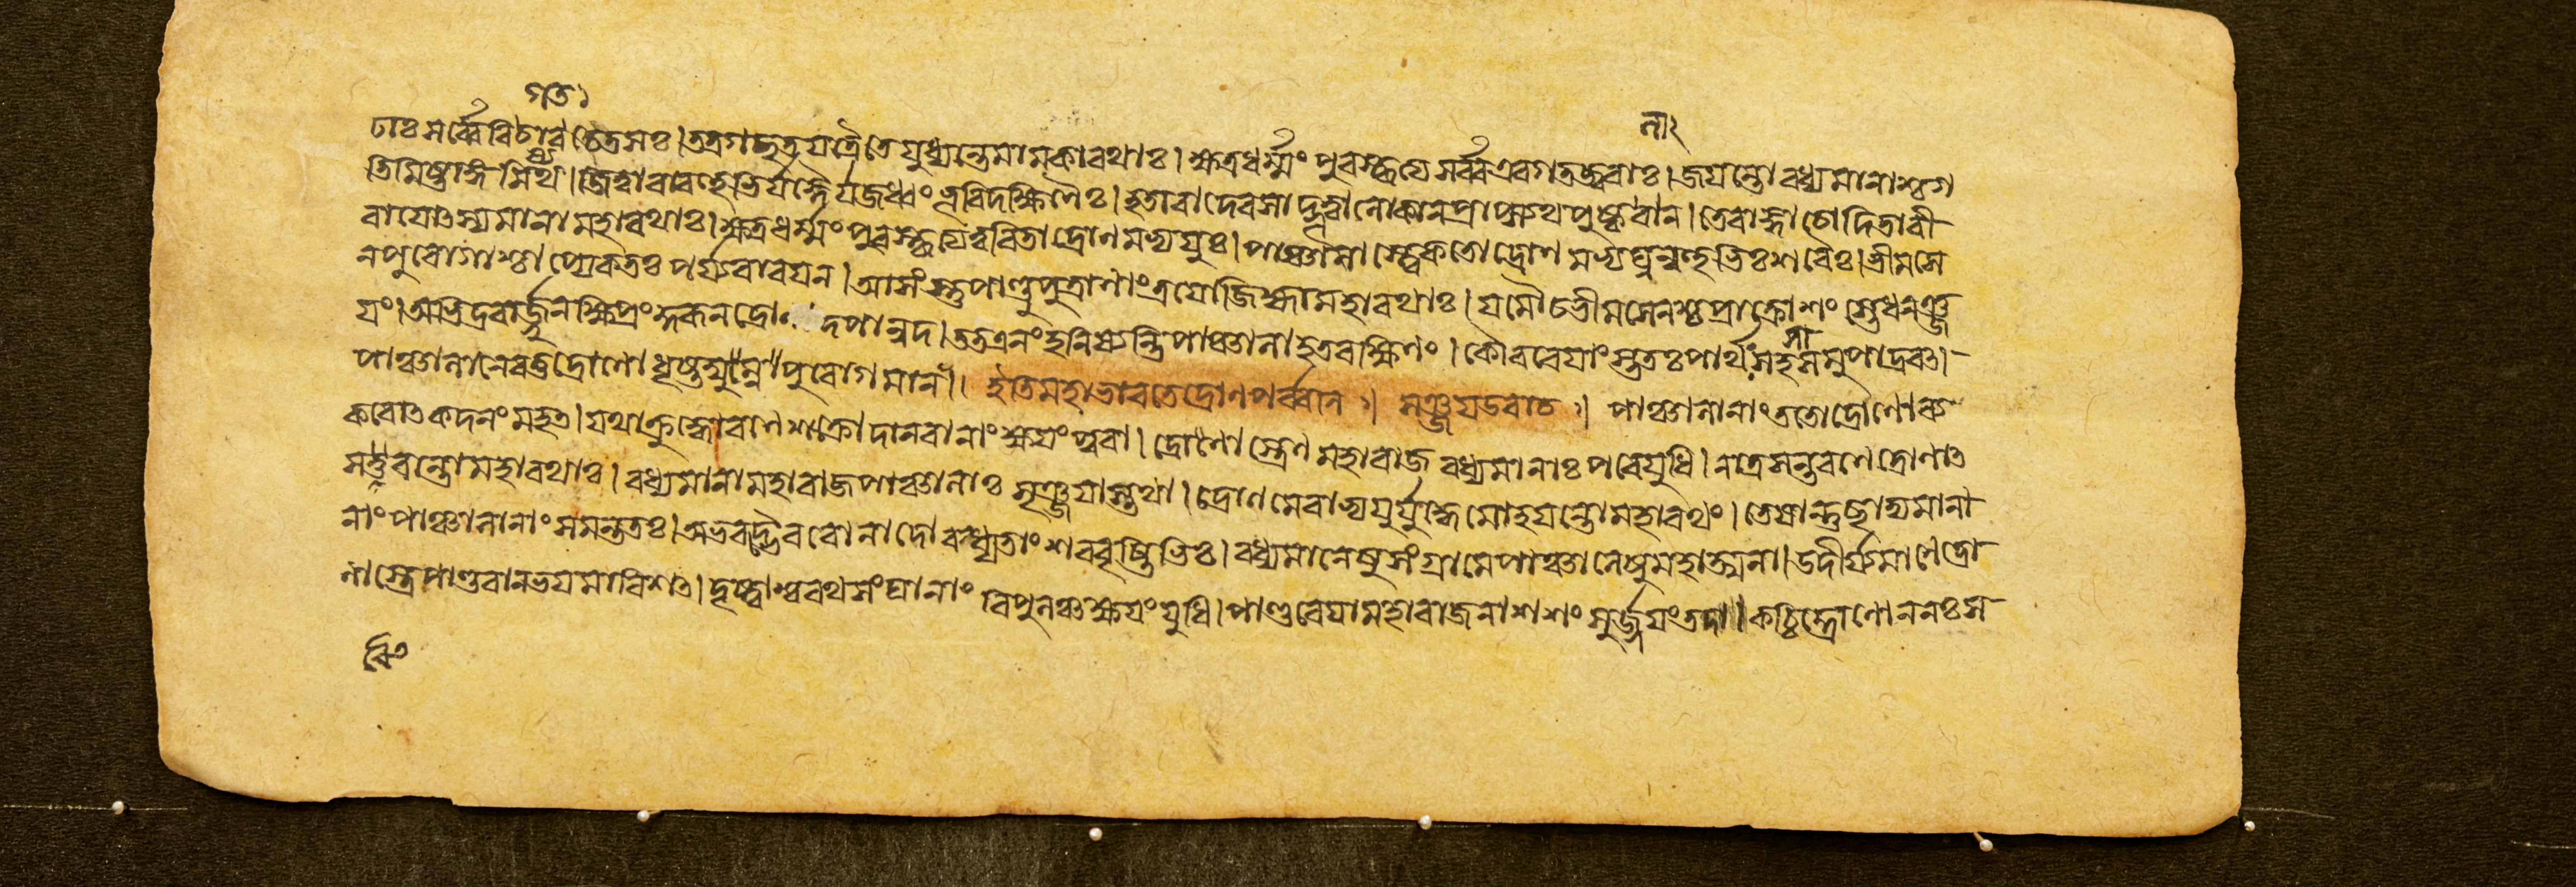 গত১
না২
ঢাঃসর্ব্বেবিচারচেতসঃ।তত্রগচ্ছতযত্রৈতেযুধ্যন্তেমামকারথাঃ।ক্ষত্রধর্ম্মংপুরস্কৃত্যসর্ব্বএবগতজ্বরাঃ।জয়ন্তোবধ্যমানাশ্চগ
তিমিষ্টাঙ্গমিষ্যথ।জিত্বাবাবহুভির্যজ্ঞৈর্যজধ্বংভূরিদক্ষিণৈঃ।হতাবাদেবসাদ্ভূত্বালোকানপ্রাপ্স্যথপুষ্কলান।তেরাজ্ঞাচোদিতাবী
রাযোৎস্যমানামহারথাঃ।ক্ষত্রধর্ম্মংপুরস্কৃত্যত্বরিতাদ্রোণমভ্যয়ুঃ।পাঞ্চালাস্ত্বেকতোদ্রোণমভ্যঘ্নন্বহুভিঃশরৈঃ।ভীমসে
নপুরোগাশ্চাপ্যেকতঃপর্য্যবারয়ন।আসংস্তুপাণ্ডুপুত্রাণাংত্রয়োজিহ্মামহারথাঃ।যমৌচভীমসেনশ্চপ্রাক্রোশংস্তেধনঞ্জ
য়ং।অভিদ্রবার্জ্জুনক্ষিপ্রংকুরূনদ্রো দপানুদ।ততএনংহনিষ্যন্তিপাঞ্চালাহতরক্ষিণং।কৌরবেয়াংস্ততঃপার্থঃসহসাসমুপাদ্রবৎ।
পাঞ্চালানেবতুদ্রোণোধৃষ্টদ্যুম্নপুরোগমান।ইতিমহাভারতেদ্রোণপর্ব্বণি।সঞ্জয়উবাচ।পাঞ্চালানাংততোদ্রোণোব্য
করোৎকদনংমহৎ।যথাক্রুদ্ধোরণেশক্রোদানবানাংক্ষয়ংপুরা।দ্রোণাস্ত্রেণমহারাজবধ্যমানাঃপরেযুধি।নাত্রসন্তরণেদ্রোণাৎ
সত্ত্ববন্তোমহারথাঃ।বধ্যমানামহারাজপাঞ্চালাঃসৃঞ্জয়াস্তথা।দ্রোণমেবাভ্যয়ুর্যুদ্ধেমোহয়ন্তোমহারথং।তেষান্তুছাদ্যমানা
নাংপাঞ্চালানাংসমন্ততঃ।অভবদ্ভৈরবোনাদোবধ্যতাংশরবৃষ্টিভিঃ।বধ্যমানেষুসংগ্রামেপাঞ্চালেষুমহাত্মনা।উদীর্য্যমাণেদ্রো
ণাস্ত্রেপাণ্ডবানভয়মাবিশৎ।দৃষ্ট্বাশ্বরথসংঘানাংবিপুলঞ্চক্ষয়ংযুধি।পাণ্ডবেয়ামহারাজনাশশংসুর্জ্জয়ংতদা।কচ্চিদ্দ্রোণোননঃস